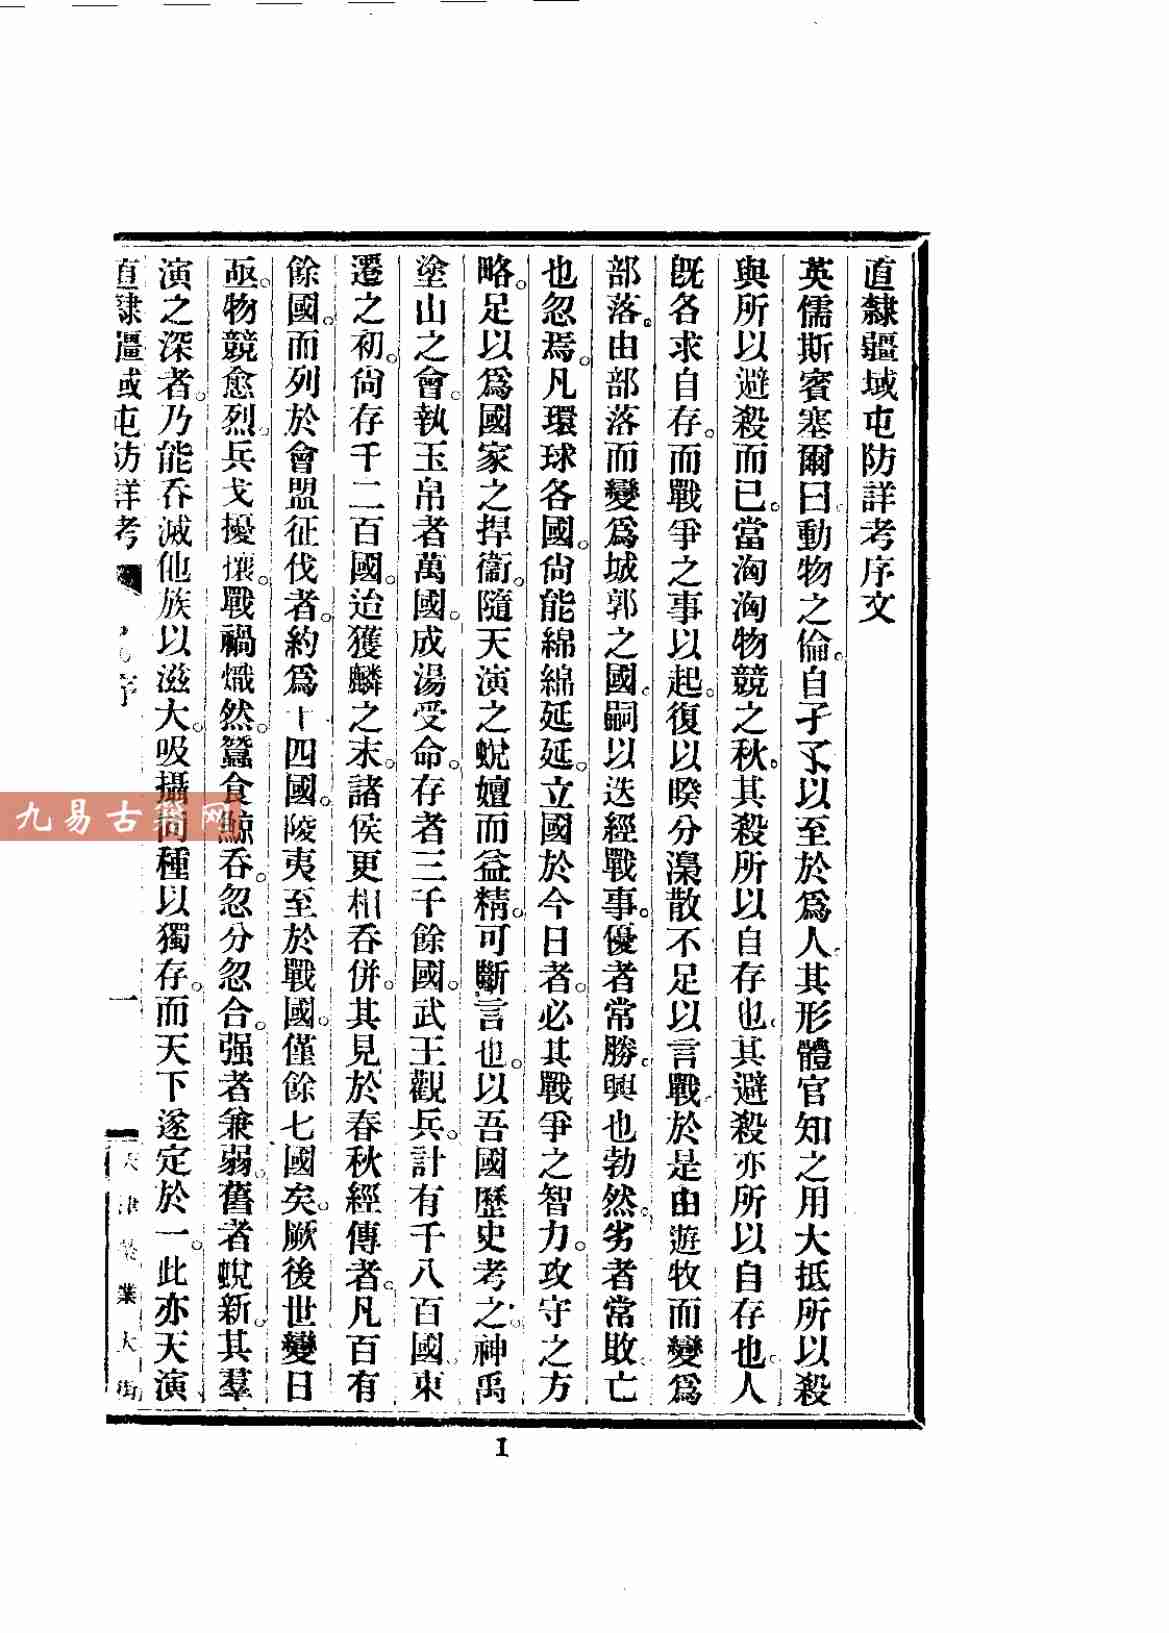 直隸疆域屯防詳考序文
英儒斯賓塞爾曰動物之倫。自孑孓以至於爲人其形體官知之用大抵所以殺
與所以避殺而已。當洶洶物競之秋。其殺所以自存也。其避殺亦所以自存也。人
旣各求自存。而戰爭之事以起。復以暌分渙散不足以言戰於是由遊牧而變爲
部落。由部落而變爲城郭之國。嗣以迭經戰事。優者常勝。興也勃然。劣者常敗。亡
也忽焉。凡環球各國。尙能綿綿延延。立國於今日者。必其戰爭之智力。攻守之方
略。足以爲國家之捍衞。隨天演之蛻嬗而益精。可斷言也。以吾國歷史考之。神禹
塗山之會。執玉帛者萬國。成湯受命。存者三千餘國。武王觀兵。計有千八百國。東
遷之初。尙存千二百國。迨獲麟之末。諸侯更相吞併。其見於春秋經傳者。凡百有
餘國。而列於會盟征伐者。約爲十四國。陵夷至於戰國。僅餘七國矣。厥後世變日
亟。物競愈烈。兵戈擾攘。戰禍熾然。蠶食鯨吞。忽分忽合。强者兼弱。舊者蛻新。其羣
演之深者。乃能吞滅他族以滋大。吸攝同種以獨存。而天下遂定於一。此亦天演
直隸疆域屯防詳考
序
一
天津業大街
I
九易古籍网